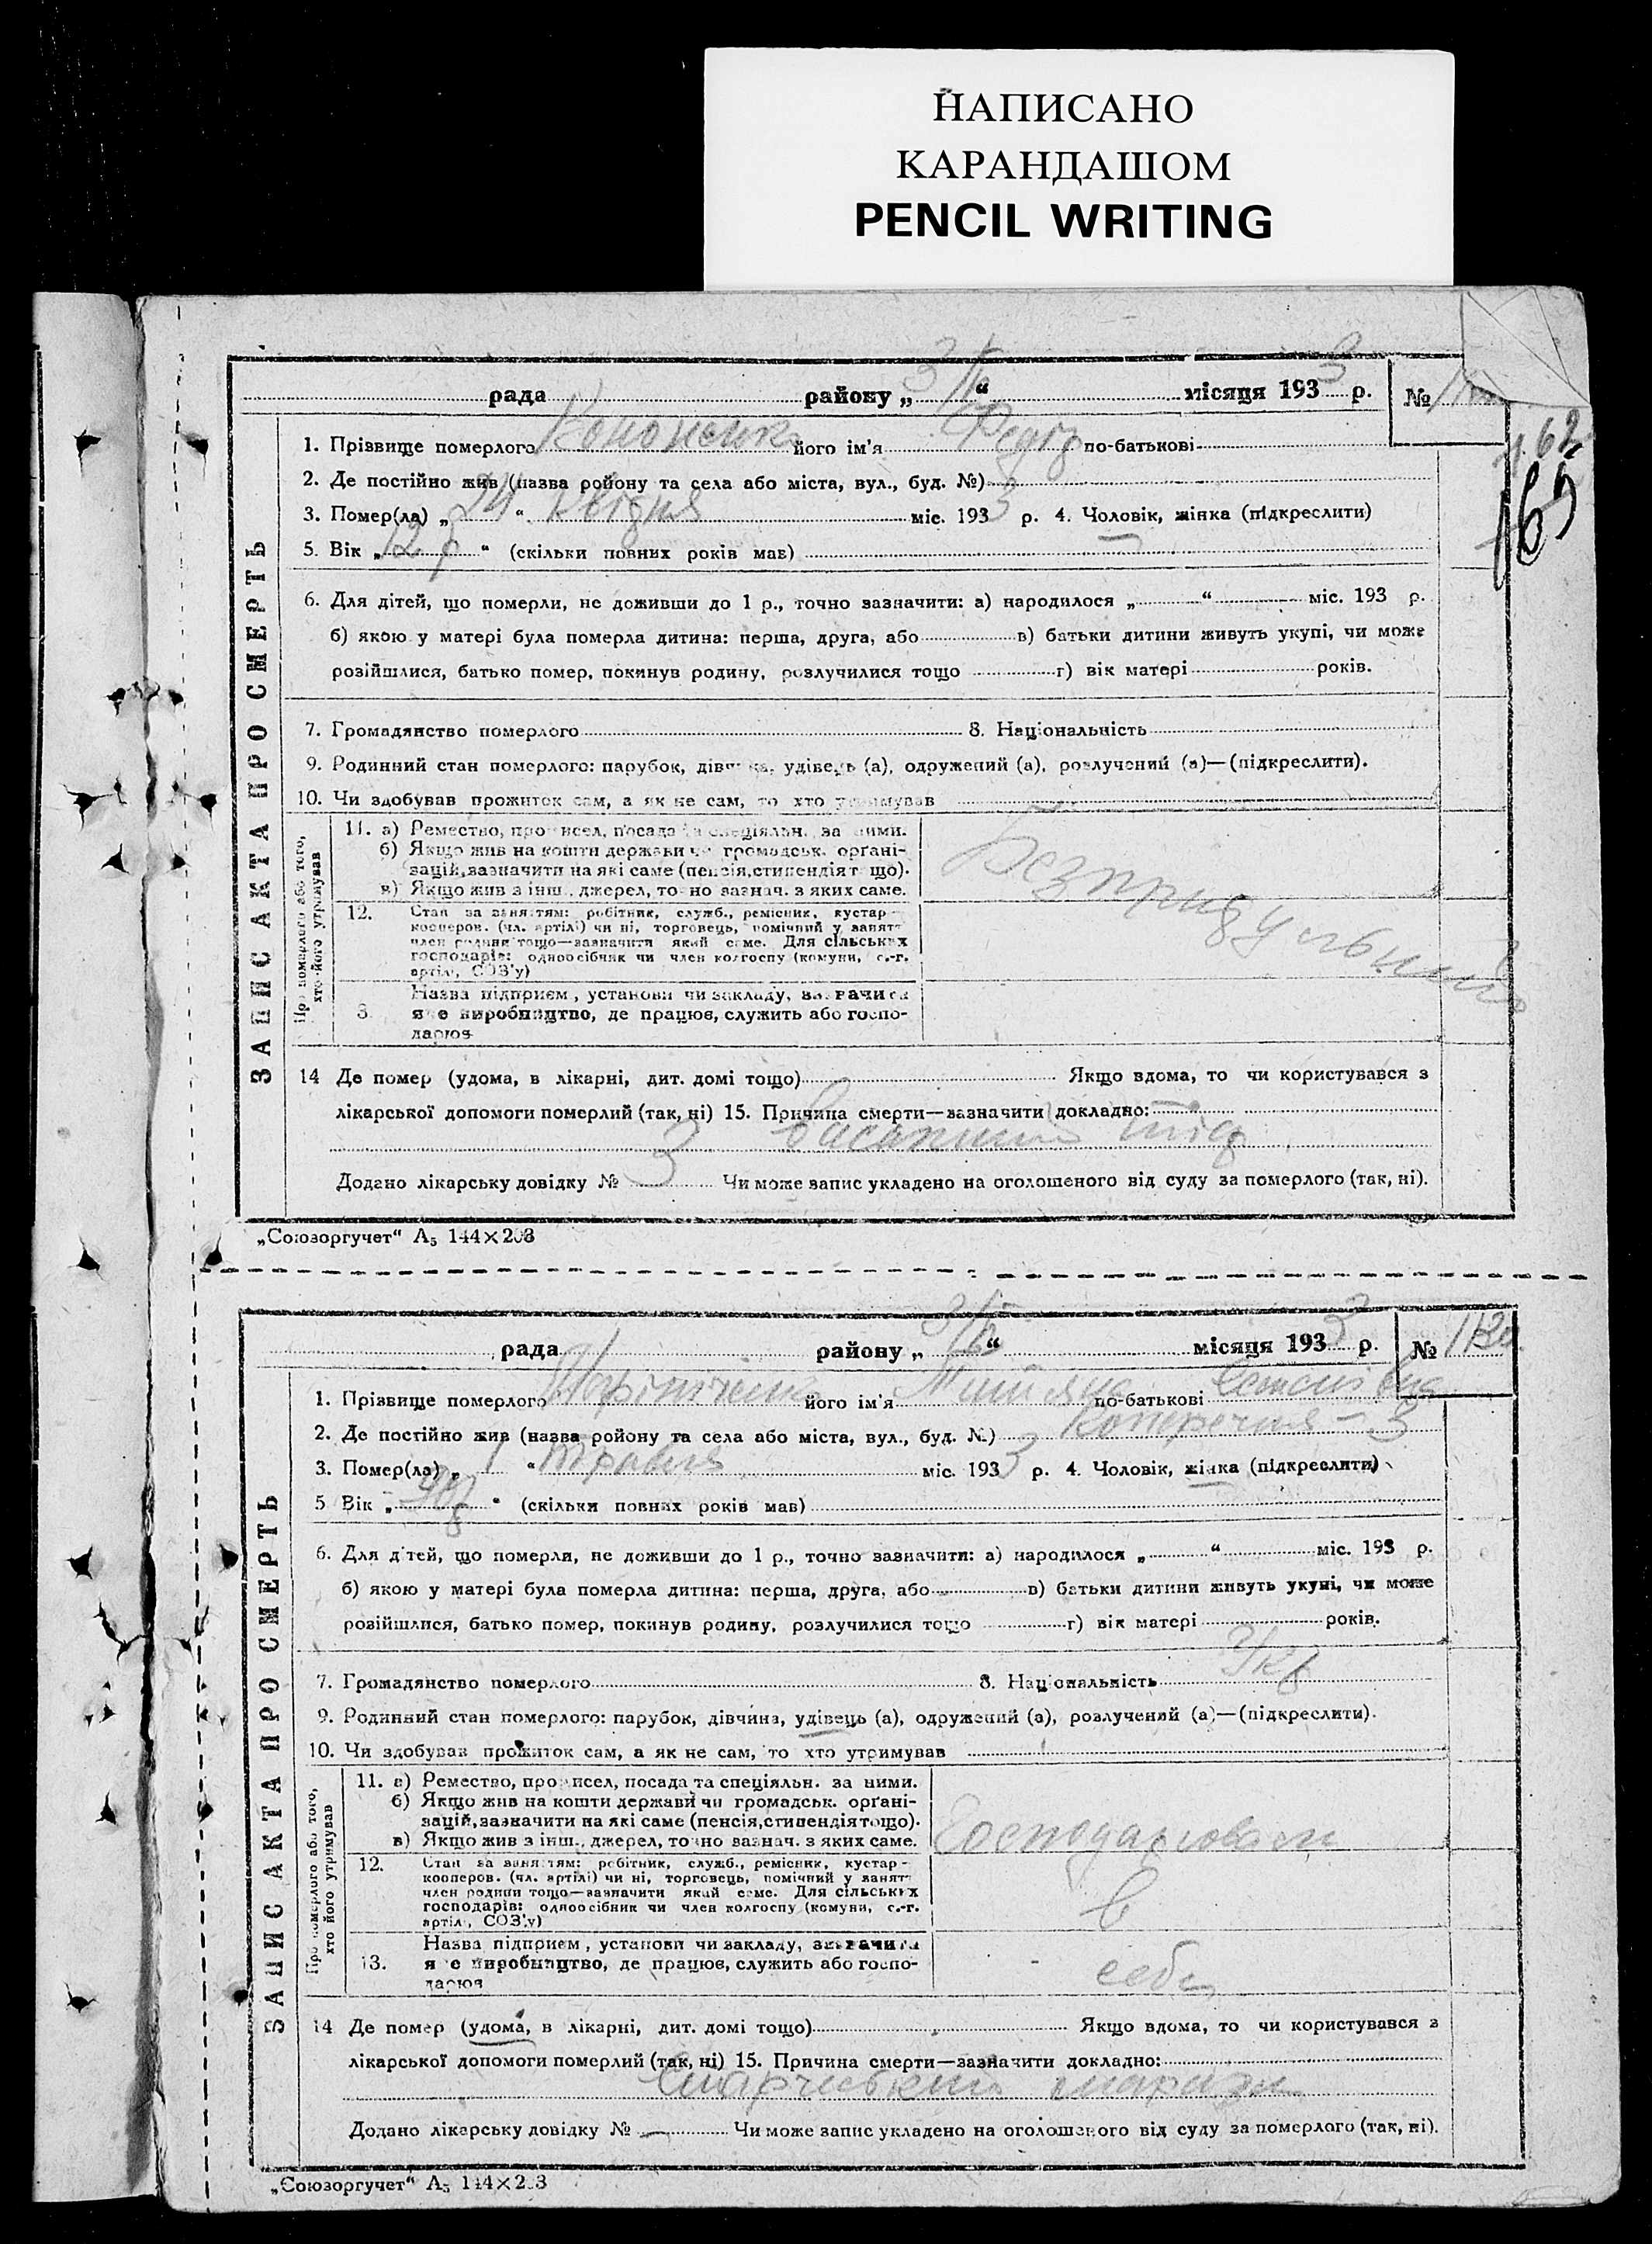 НАПИСАНО
КАРАНДАШОМ
PENCIL WRITING
рада району „ 3/V “ місяця 1933 р. №
1. Прізвище померлого Кононенко його ім'я Федір по-батькові
2. Де постійно жив (назва ройону та села або міста, вул., буд. №)
3. Помер(ла) „ 24 “ квітня міс. 1933 р. 4. Чоловік, жінка (підкреслити)
5. Вік „ 12 р “ (скільки повних років мав)
ч. 62
165
6. Для дітей, що померли, не доживши до 1 р., точно зазначити: а) народилося „ “ міс. 193 р.
б) якою у матері була померла дитина: перша, друга, або в) батьки дитини живуть укупі, чи може
розійшлися, батько помер, покинув родину, розлучилися тощо г) вік матері років.
7. Громадянство померлого 8. Національність
9. Родинний стан померлого: парубок, дівчина, удівець (а), одружений (а), розлучений (а)—(підкреслити).
10. Чи здобував прожиток сам, а як не сам, то хто утримував
11. а) Ремество, промисел, посада та спеціяльн. за ними.
б) Якщо жив на кошти держави чи громадськ. органі-
зацій, зазначити на які саме (пенсія, стипендія тощо).
в) Якщо жив з інш. джерел, точно зазнач. з яких саме.
Безпритульний
12. Стан за заняттям: робітник, служб., ремісник, кустар -
кооперов. (чл. артілі) чи ні, торговець, помічний у занятт
член родини тощо—зазначити який саме. Для сільських
господарів: одноосібник чи член колгоспу (комуни, с.-г.
артілі, СОЗ'у)
Назва підприєм., установи чи закладу, зазначити
яке виробництво, де працює, служить або госпо-
дарює
Про померлого або того,
хто його утримував
ЗАПИС АКТА ПРО СМЕРТЬ
14 Де помер (удома, в лікарні, дит. домі тощо) Якщо вдома, то чи користувався з
лікарської допомоги померлий (так, ні) 15. Причина смерти—зазначити докладно:
Додано лікарську довідку № 3 Чи може запис укладено на оголошеного від суду за померлого (так, ні).
„Союзоргучет“ А5 144×203
рада району „ 3/V “ місяця 1933 р. №
1. Прізвище померлого його ім'я по-батькові
2. Де постійно жив (назва ройону та села або міста, вул., буд. №) Коперечня – 3
3. Помер(ла) „ 1 “ травня міс. 1933 р. 4. Чоловік, жінка (підкреслити)
5 Вік „ “ (скільки повних років мав)
6. Для дітей, що померли, не доживши до 1 р., точно зазначити: а) народилося „ “ міс. 193 р.
б) якою у матері була померла дитина: перша, друга, або в) батьки дитини живуть укупі, чи може
розійшлися, батько помер, покинув родину, розлучилися тощо г) вік матері років.
7. Громадянство померлого 8. Національність Укр
9. Родинний стан померлого: парубок, дівчина, удівець (а), одружений (а), розлучений (а)—(підкреслити).
10. Чи здобував прожиток сам, а як не сам, то хто утримував
11. а) Ремество, промисел, посада та спеціяльн. за ними.
б) Якщо жив на кошти держави чи громадськ. органі-
зацій, зазначити на які саме (пенсія, стипендія тощо).
в) Якщо жив з інш. джерел, точно зазнач. з яких саме.
12. Стан за заняттям: робітник, служб., ремісник, кустар -
кооперов. (чл. артілі) чи ні, торговець, помічний у занятт
член родини тощо—зазначити який саме. Для сільських
господарів: одноосібник чи член колгоспу (комуни, с.-г.
артілі, СОЗ'у)
в
Назва підприєм., установи чи закладу, зазначити
13. яке виробництво, де працює, служить або госпо-
дарює
себе
Про померлого або того,
хто його утримував
ЗАПИС АКТА ПРО СМЕРТЬ
14 Де помер (удома, в лікарні, дит. домі тощо) Якщо вдома, то чи користувався з
лікарської допомоги померлий (так, ні) 15. Причина смерти—зазначити докладно:
Старческий маразм
Додано лікарську довідку № — Чи може запис укладено на оголошеного від суду за померлого (так, ні).
„Союзоргучет“ А5 144×203